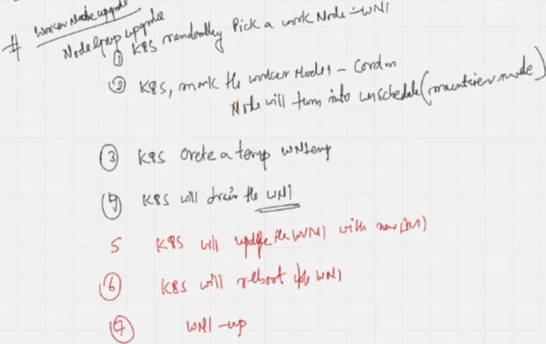 # Worker Node upgrade
Node Group upgrade
① K8S randomly Pick a work Node - WN1
② K8S, mark the worker Node1 - Cordon
Node will turn into unschedule (maintainer mode)
③ K8S Create a temp WNtemp
④ K8S will drain the WN1
5 K8S will update the WN1 with new
⑥ K8S will reboot the WN1
⑦ WN1 - up